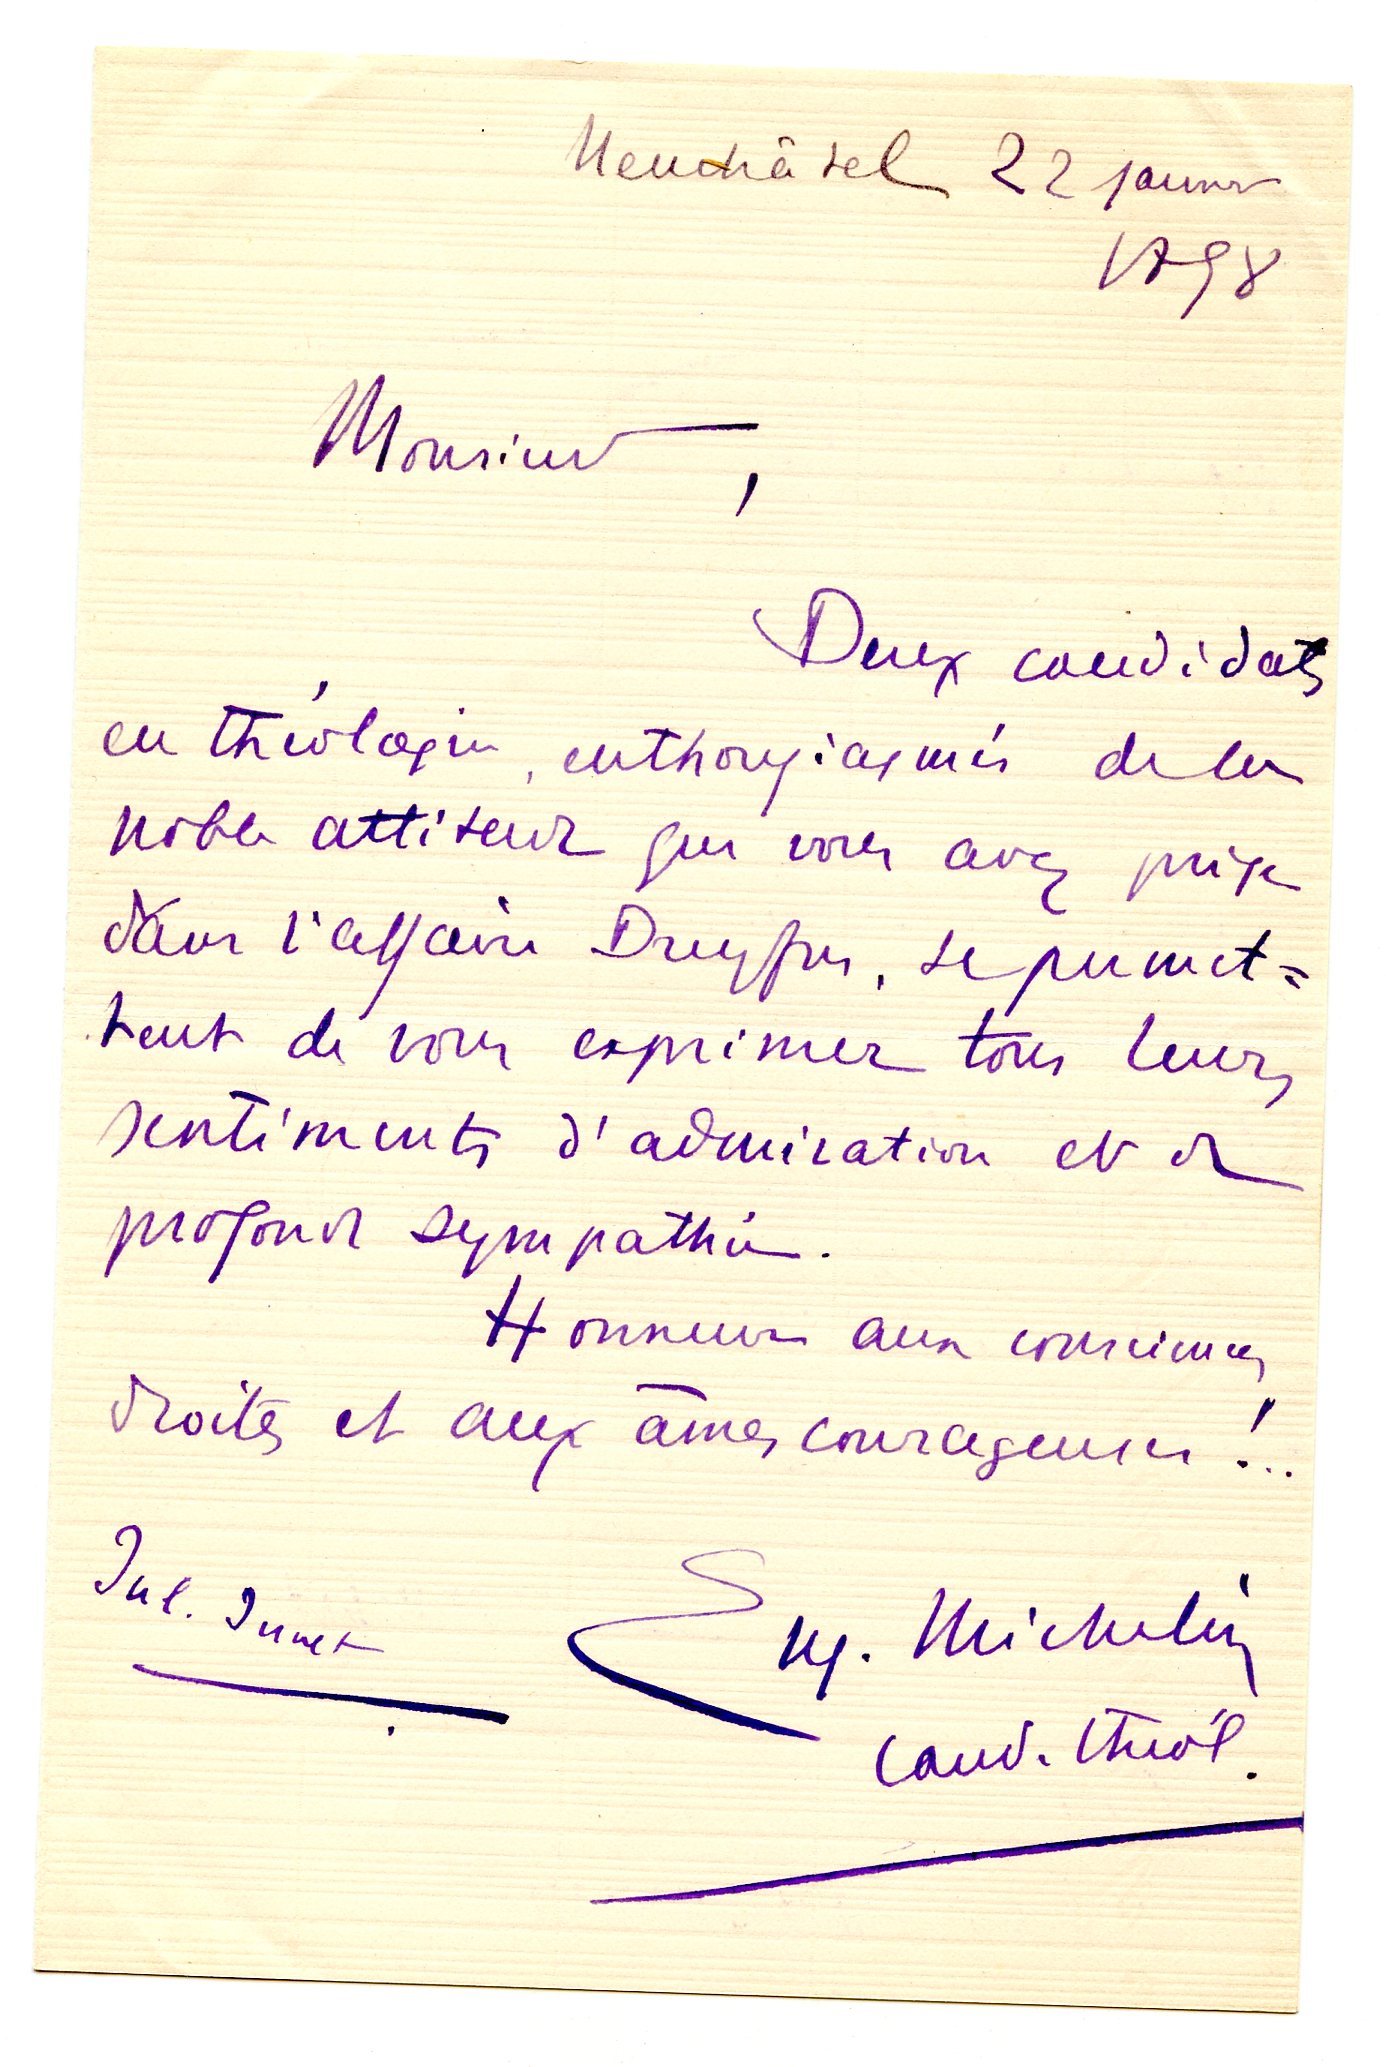 Neuchâtel 22 janvier
1898
Monsieur,
Deux candidats
en théologie, enthousiasmés de la
noble attitude que vous avez prise
dans l'affaire Dreyfus, se permet=
tent de vous exprimer tous leurs
sentiments d'admiration et de
profonde sympathie.
Honneur aux consciences
droites et aux âmes courageuses !...
Jul. Junet
Eug. Michelin
cand. théol.